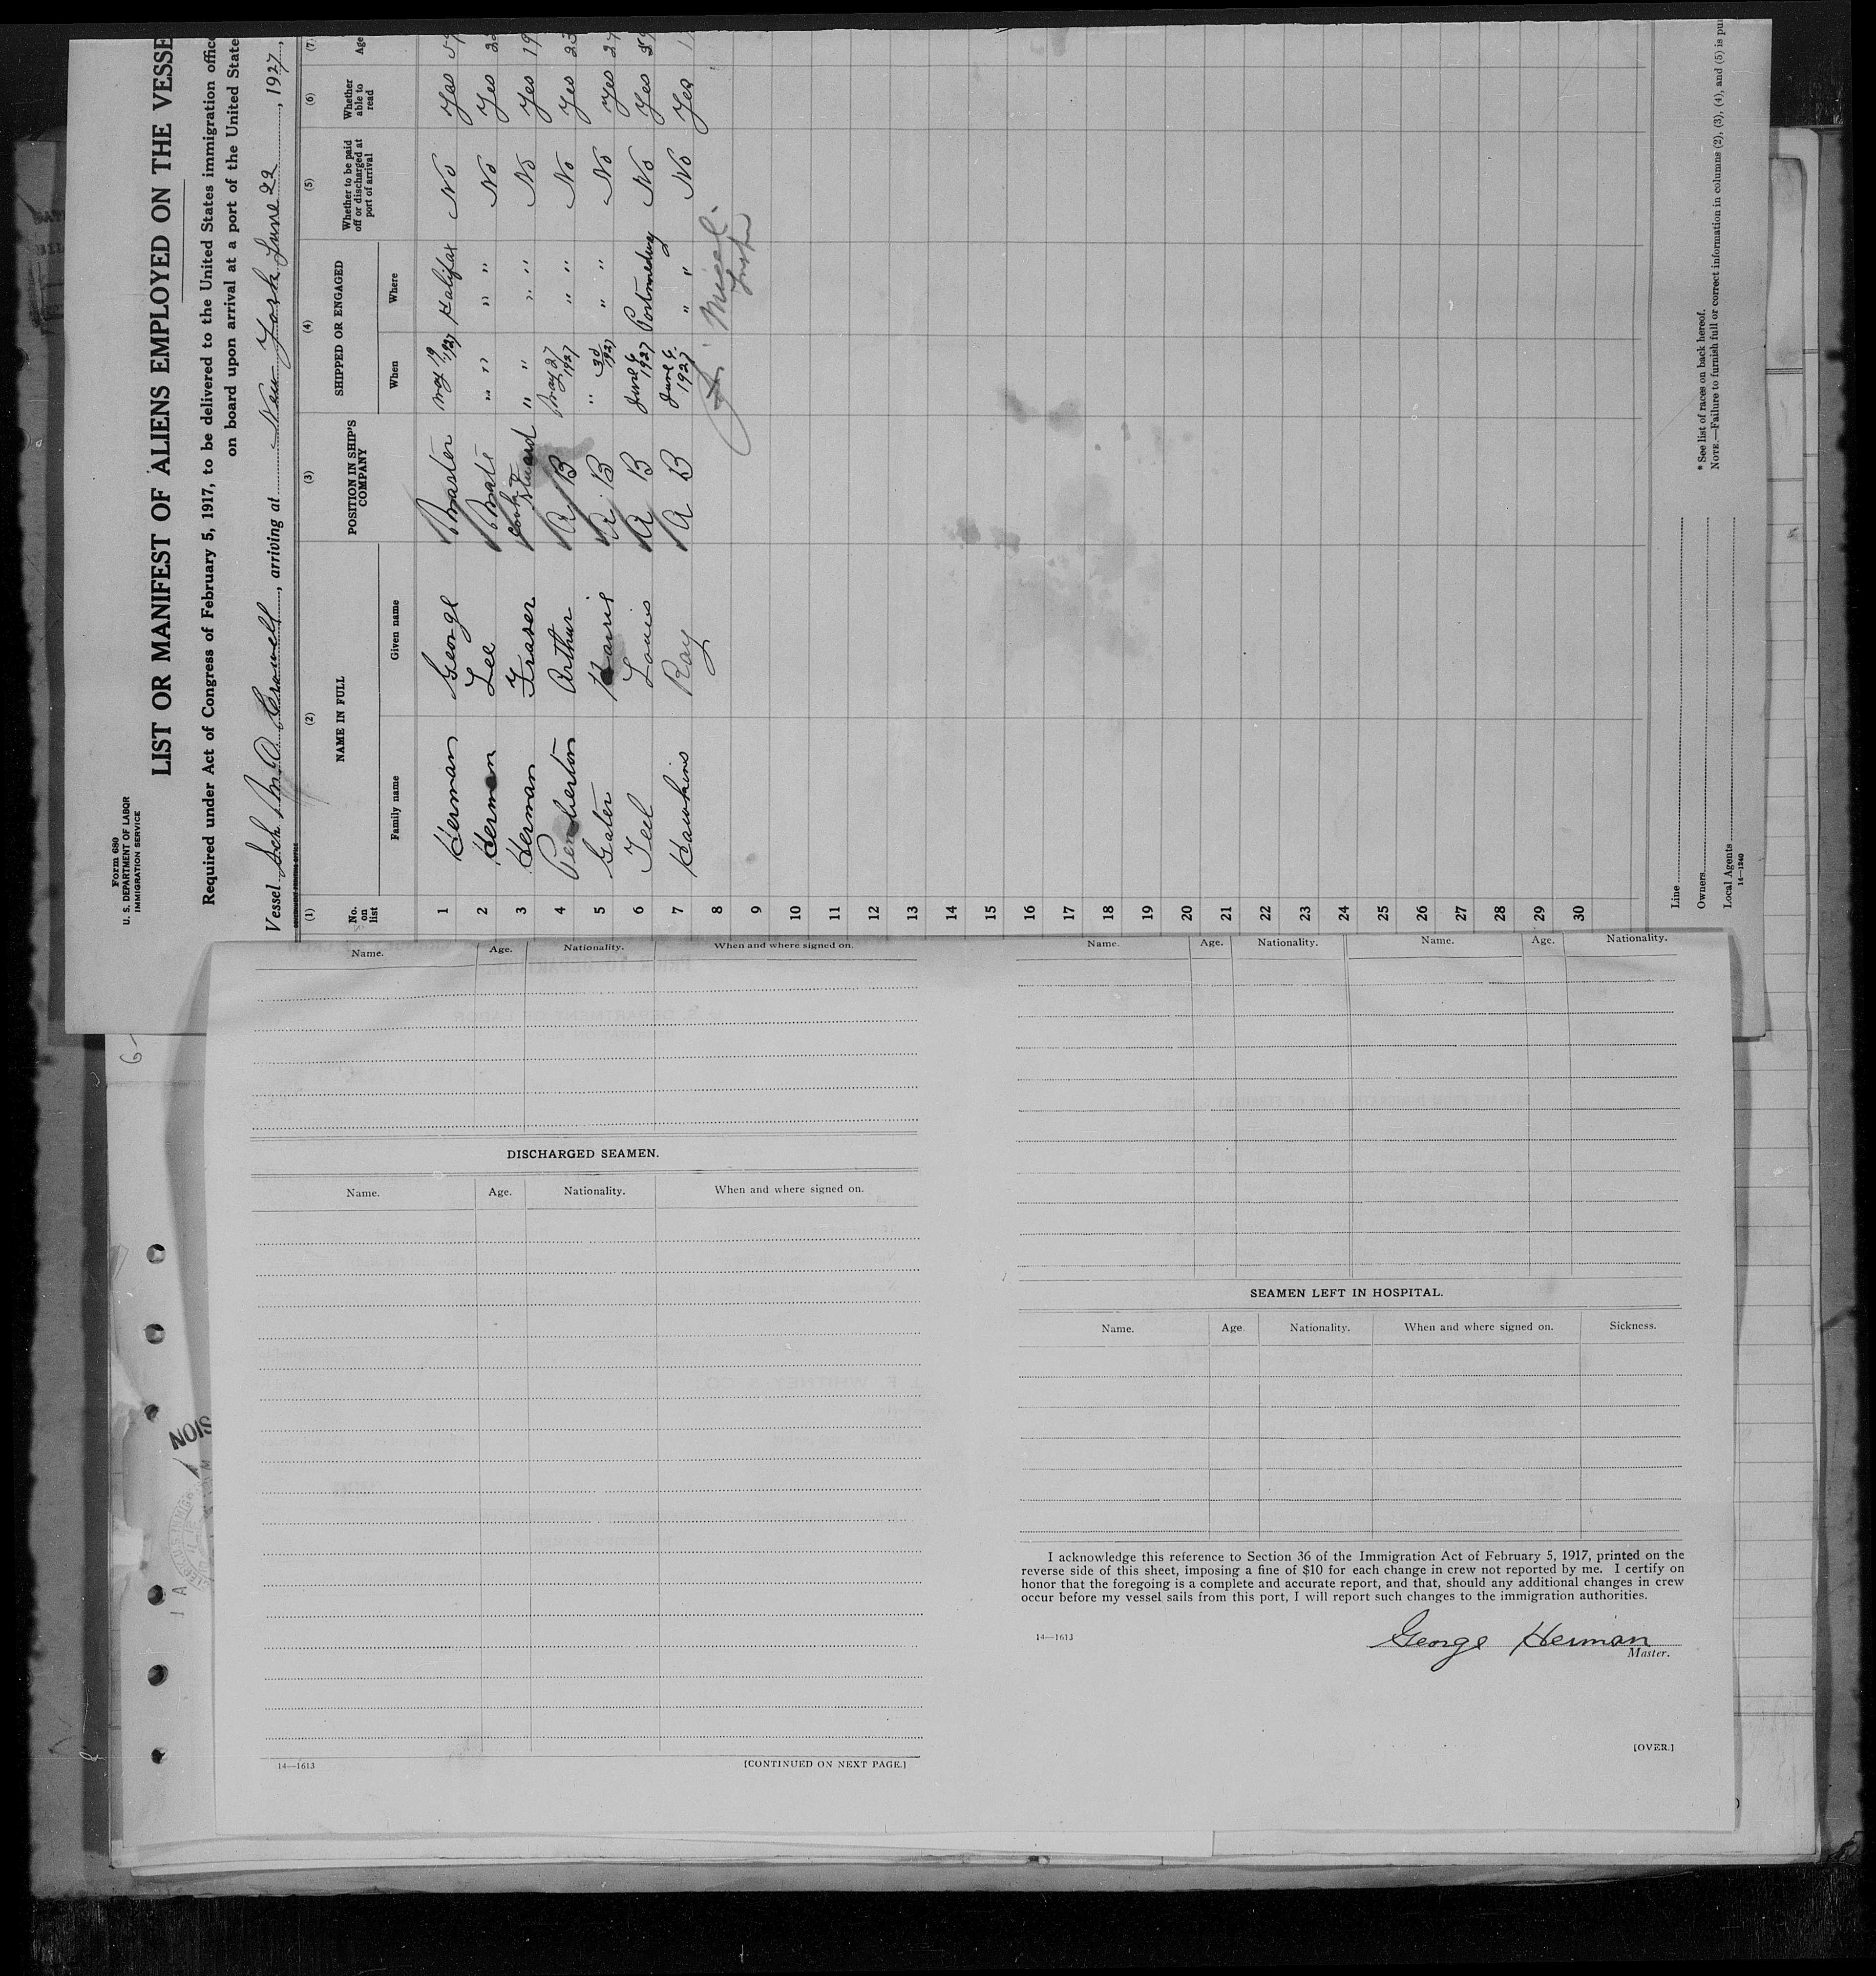 Form 680
U. S. DEPARTMENT OF LABOR
IMMIGRATION SERVICE
LIST OR MANIFEST OF ALIENS EMPLOYED ON THE VESSE
Required under Act of Congress of February 5, 1917, to be delivered to the United States immigration offic
on board upon arrival at a port of the United State
Vessel Sch M. A. , arriving at New York June 22, 1927,
(1) (2) (3) (4) (5) (6) (7)
No. on list NAME IN FULL POSITION IN SHIP'S COMPANY SHIPPED OR ENGAGED Whether to be paid off or discharged at port of arrival Whether able to read Age
Family name Given name When Where
1 Herman George Master May 19 1927 Halifax No Yes
2 Herman Lee Mate " " " " No Yes
3 Herman Fraser Cook & Steward " " " " No Yes 19
4 Pemberton Arthur A B May 27 1927 " " No Yes 23
5 Gates A. B " 1927 " " No Yes 27
6 Teel Louis A B June 6 1927 Portmedway No Yes
7 Hawkins Ray A B June 6. 1927 " " No Yes
8
9
10
11
12
13
14
15
16
17
18
19
20
21
22
23
24
25
26
27
28
29
30
* See list of races on back hereof.
NOTE.—Failure to furnish full or correct information in columns (2), (3), (4), and (5) is pu
Line
Owners
Local Agents
14—1240
Name. Age. Nationality. When and where signed on.
DISCHARGED SEAMEN.
Name. Age. Nationality. When and where signed on.
14—1613 [CONTINUED ON NEXT PAGE.]
Name. Age. Nationality. Name. Age. Nationality.
SEAMEN LEFT IN HOSPITAL.
Name. Age. Nationality. When and where signed on. Sickness.
I acknowledge this reference to Section 36 of the Immigration Act of February 5, 1917, printed on the
reverse side of this sheet, imposing a fine of $10 for each change in crew not reported by me. I certify on
honor that the foregoing is a complete and accurate report, and that, should any additional changes in crew
occur before my vessel sails from this port, I will report such changes to the immigration authorities.
14—1613
George Herman
Master.
[OVER.]